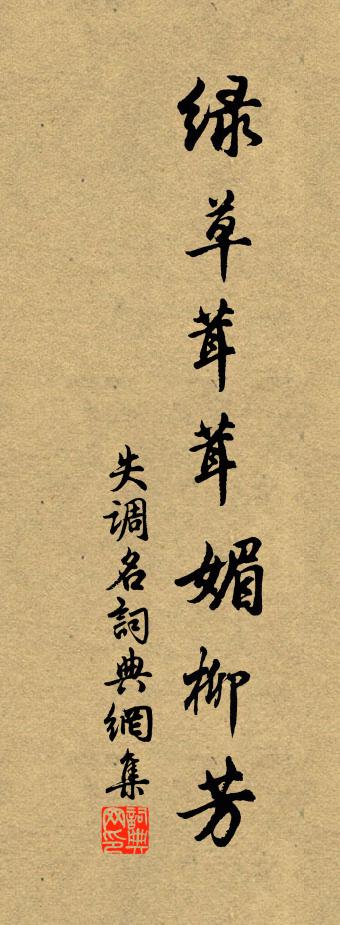 绿草茸茸媚柳芳
失调名詞典網集
詞典網印